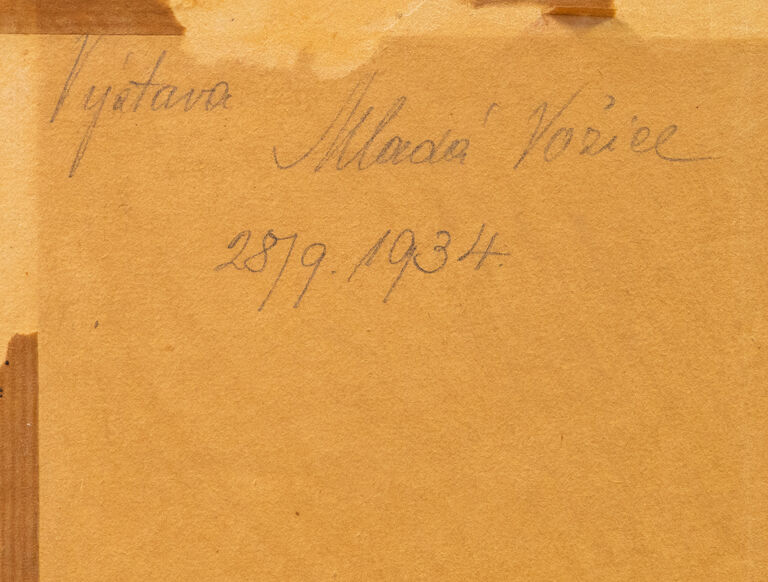 Výstava
Mladá Vožice
28/9. 1934.